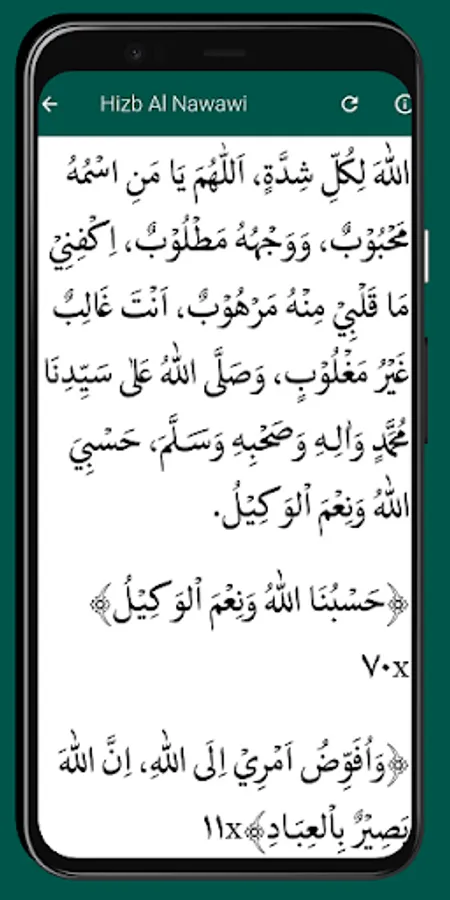 Hizb Al Nawawi
اللّٰهَ لِكُلِّ شِدَّةٍ، اَللّٰهُمَّ يَا مَنِ اسْمُهُ
مَحْبُوْبٌ، وَوَجْهُهُ مَطْلُوْبٌ، اِكْفِنِيْ
مَا قَلْبِيْ مِنْهُ مَرْهُوْبٌ، اَنْتَ غَالِبٌ
غَيْرُ مَغْلُوْبٍ، وَصَلَّى اللّٰهُ عَلٰى سَيِّدِنَا
مُحَمَّدٍ وَاٰلِهِ وَصَحْبِهِ وَسَلَّمَ، حَسْبِيَ
اللّٰهُ وَنِعْمَ الْوَكِيْلُ.
﴿حَسْبُنَا اللّٰهُ وَنِعْمَ الْوَكِيْلُ﴾
٧٠x
﴿وَاُفَوِّضُ اَمْرِيْ اِلَى اللّٰهِ، اِنَّ اللّٰهَ
بَصِيْرٌ بِالْعِبَادِ﴾١١x